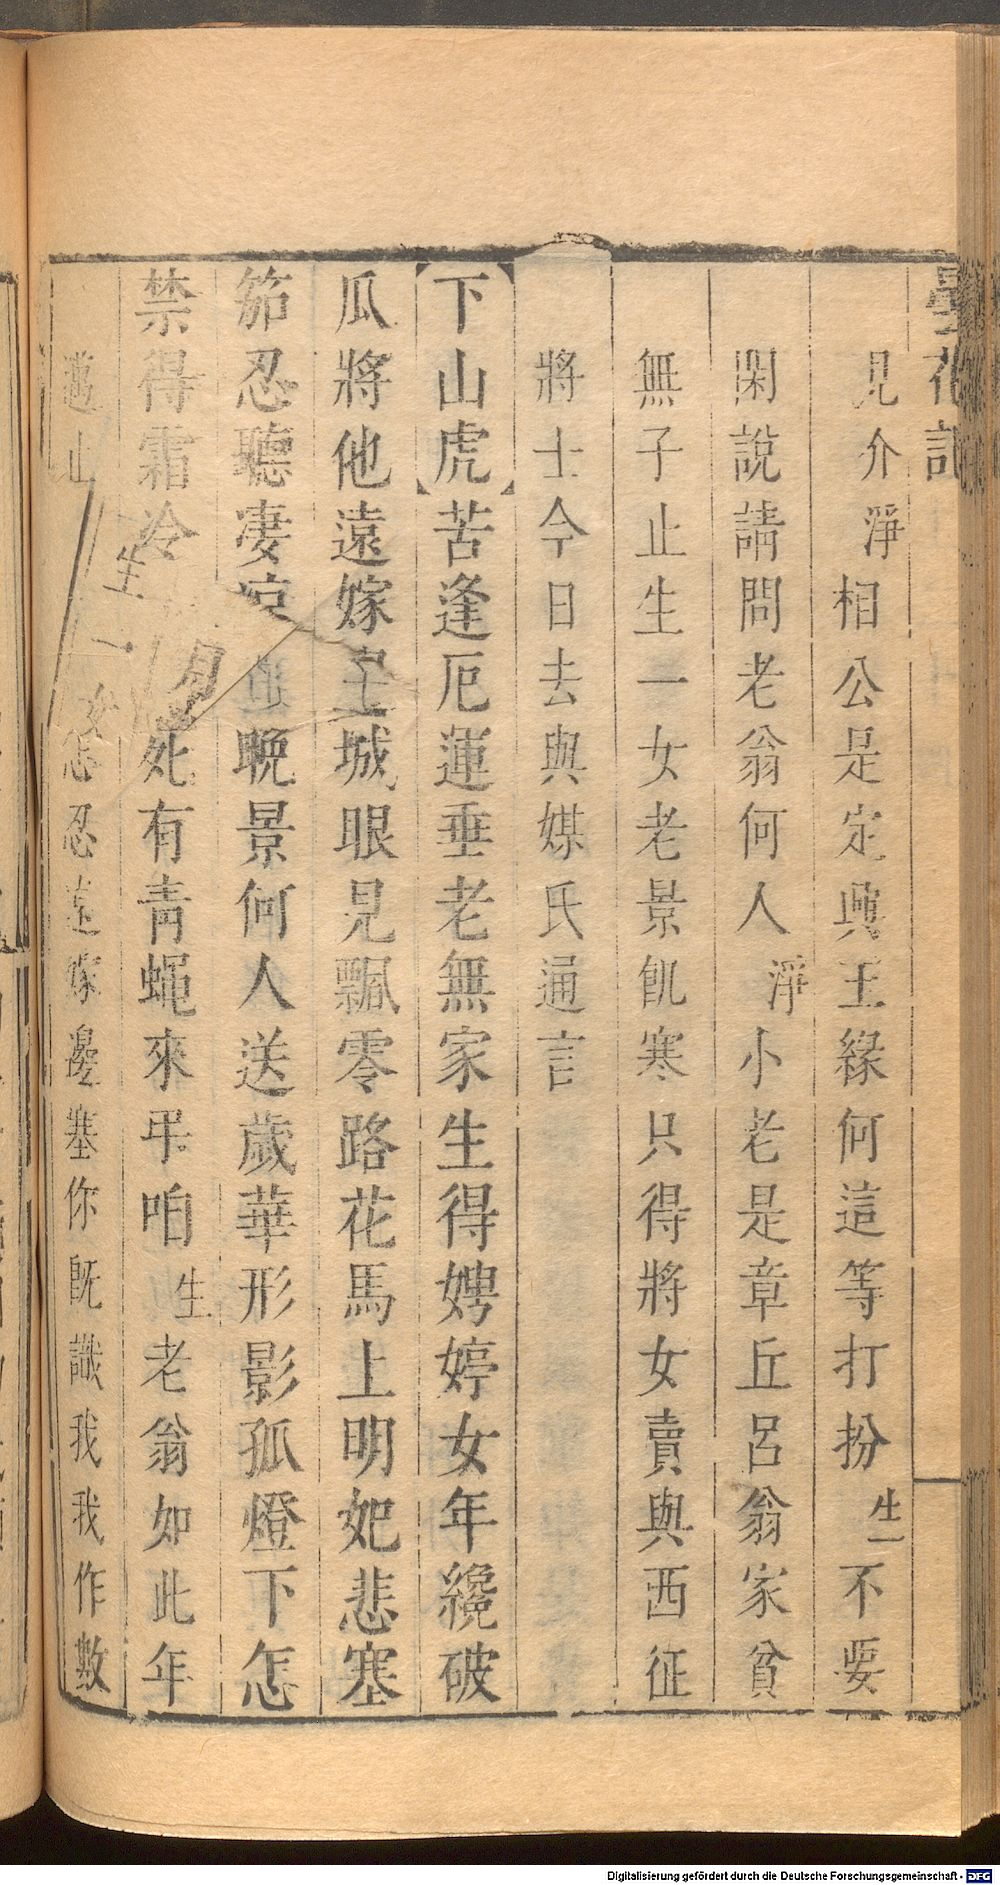 曇花記
見介淨相公是定興王緣何這等打扮生不要
閑說請問老翁何人淨小老是章丘呂翁家貧
無子止生一女老景飢寒只得將女賣與西征
將士今日去與媒氏通言
下山虎苦逢厄運垂老無家生得娉婷女年纔破
瓜將他遠嫁城眼見飄零路花馬上明妃悲塞
笳忍聽凄凉晚景何人送歲華形影孤燈下怎
禁得霜冷月死有靑蠅來弔咱生老翁如此年
邁止生一女怎忍遠嫁邊塞你旣識我我作數
Digitalisierung gefördert durch die Deutsche Forschungsgemeinschaft - DFG